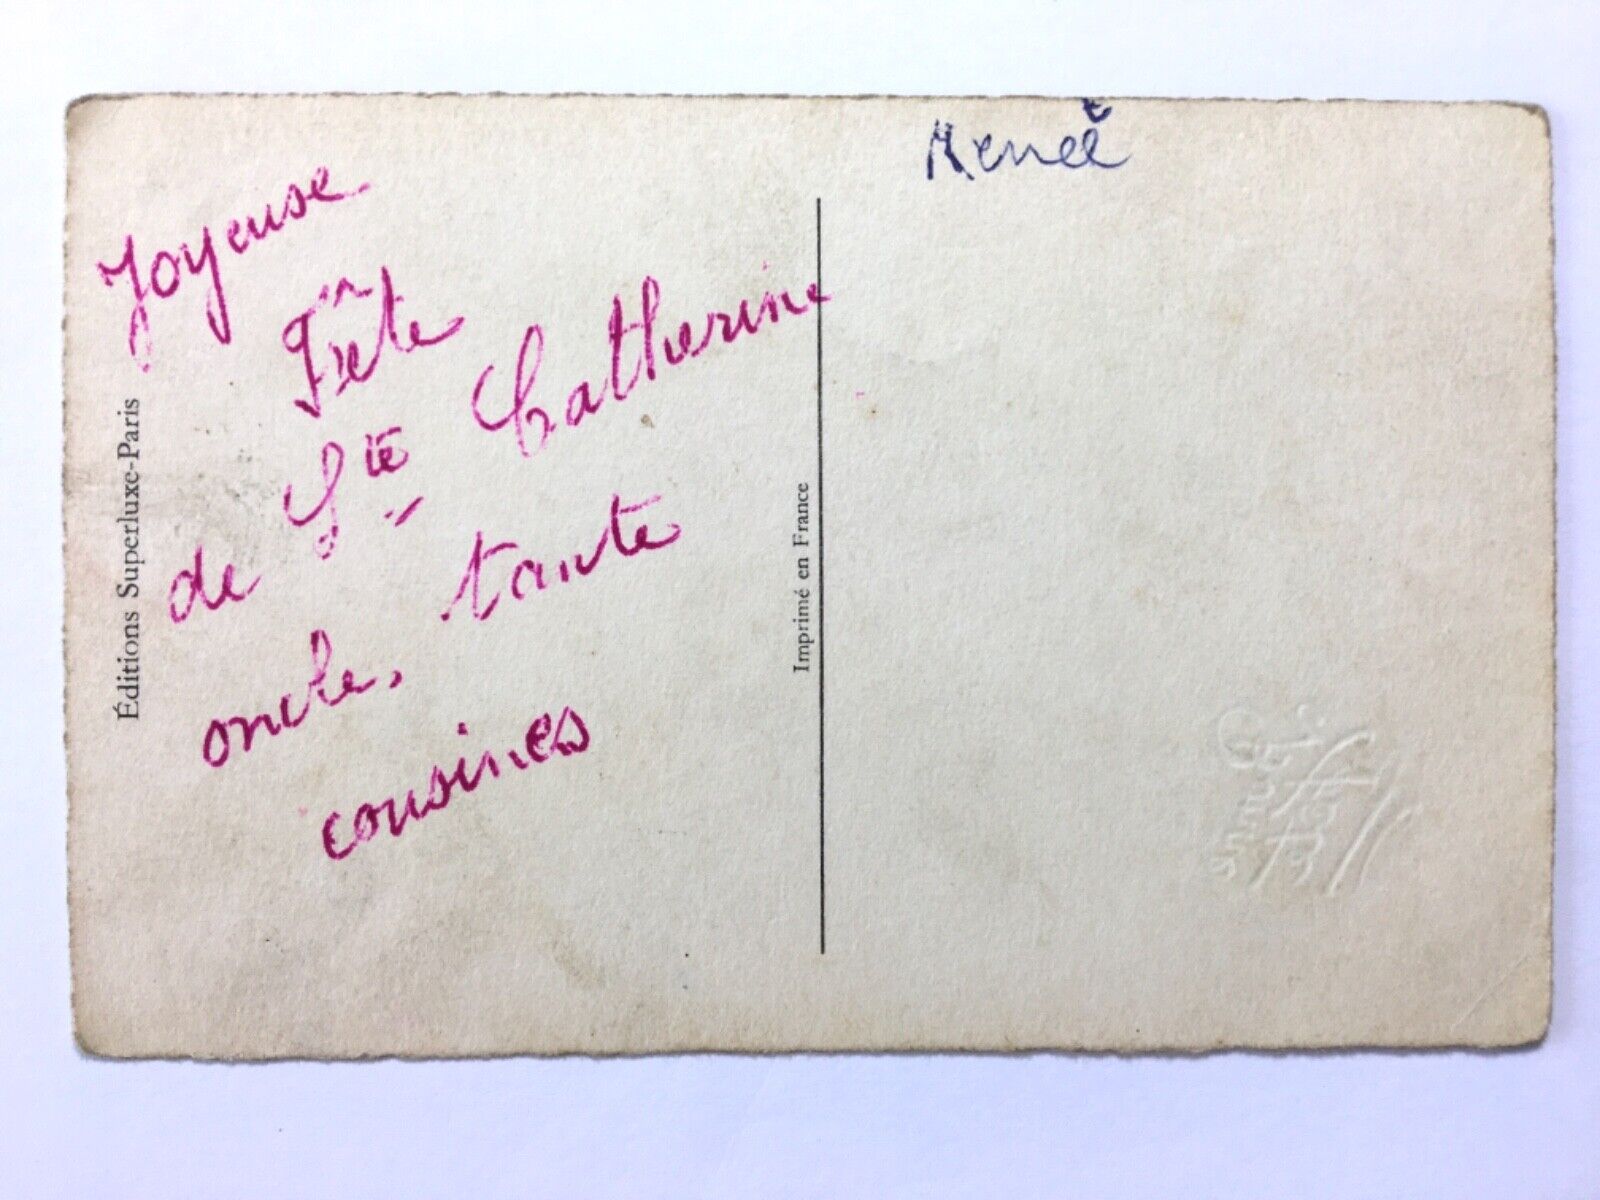 Renée
Joyeuse
Fête
de Ste Catherine
oncle, tante
cousines
Éditions Superluxe-Paris
Imprimé en France